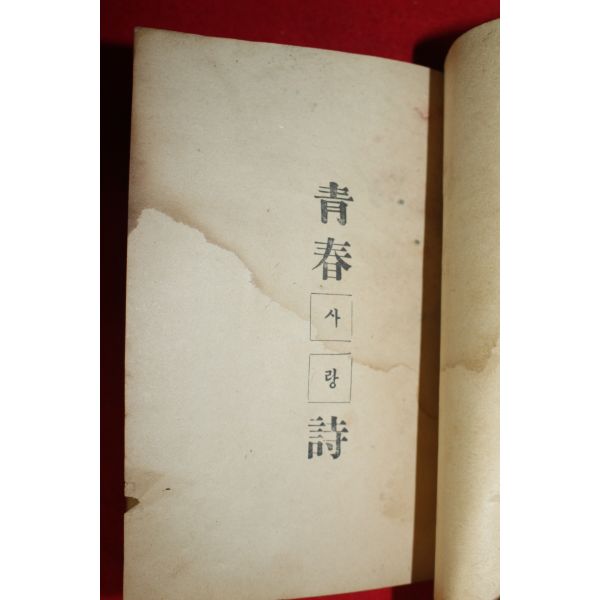 青春사랑詩